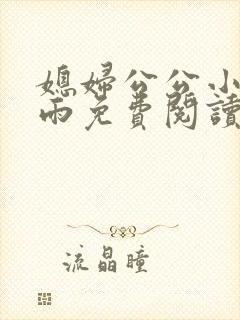 媳婦公公小
雨免費閱讀
流晶瞳